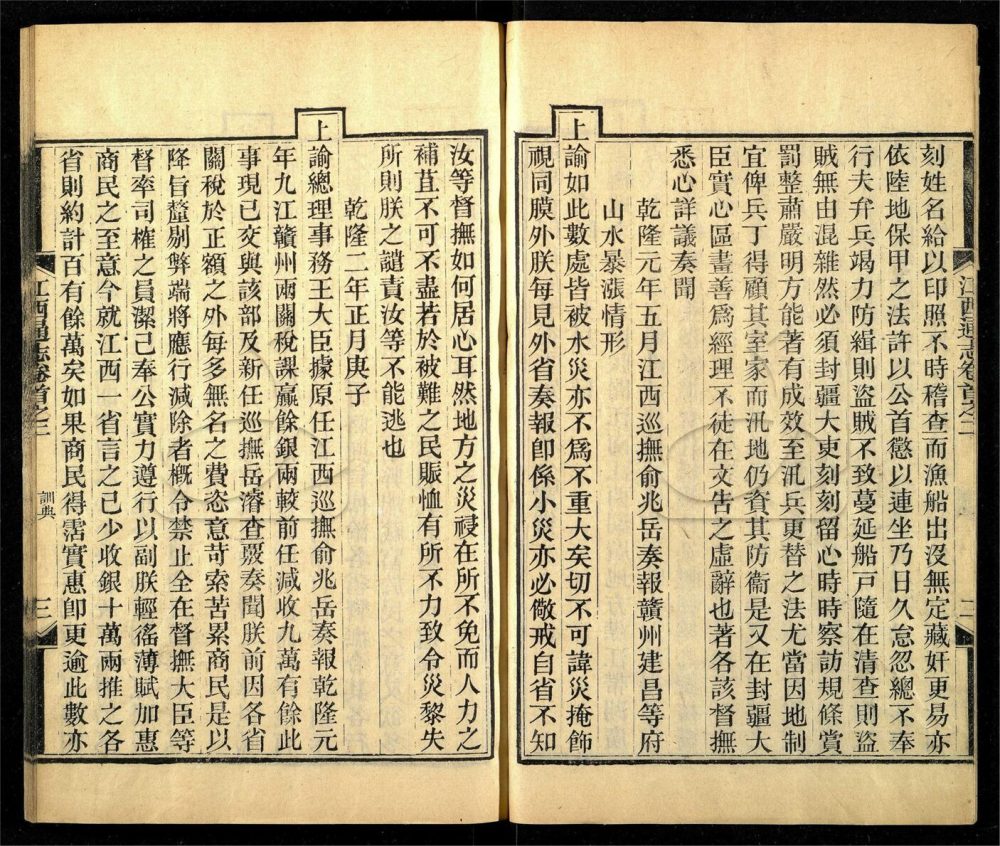 刻姓名給以印照不時稽查而漁船出沒無定藏奸更易亦
依陸地保甲之法許以公首懲以連坐乃日久怠忽總不奉
行夫弁兵竭力防緝則盜賊不致蔓延船戸隨在清查則盜
賊無由混雜然必須封疆大吏刻刻留心時時察訪規條賞
罰整肅嚴明方能著有成效至汛兵更替之法尤當因地制
宜俾兵丁得顧其室家而汛地仍資其防衞是又在封疆大
臣實心區畫善爲經理不徒在文告之虛辭也著各該督撫
悉心詳議奏聞
乾隆元年五月江西巡撫俞兆岳奏報贛州建昌等府
山水暴漲情形
上諭如此數處皆被水災亦不爲不重大矣切不可諱災掩飾
視同膜外朕每見外省奏報卽係小災亦必儆戒自省不知
江西通志卷首之二
二
汝等督撫如何居心耳然地方之災祲在所不免而人力之
補苴不可不盡若於被難之民賑恤有所不力致令災黎失
所則朕之譴責汝等不能逃也
乾隆二年正月庚子
上諭總理事務王大臣據原任江西巡撫俞兆岳奏報乾隆元
年九江贛州兩關稅課贏餘銀兩較前任減收九萬有餘此
事現已交與該部及新任巡撫岳濬查覈奏聞朕前因各省
關稅於正額之外每多無名之費恣意苛索苦累商民是以
降旨釐剔弊端將應行減除者槪令禁止全在督撫大臣等
督率司榷之員潔己奉公實力遵行以副朕輕徭薄賦加惠
商民之至意今就江西一省言之已少收銀十萬兩推之各
省則約計百有餘萬矣如果商民得霑實惠卽更逾此數亦
江西通志卷首之二
訓典
三